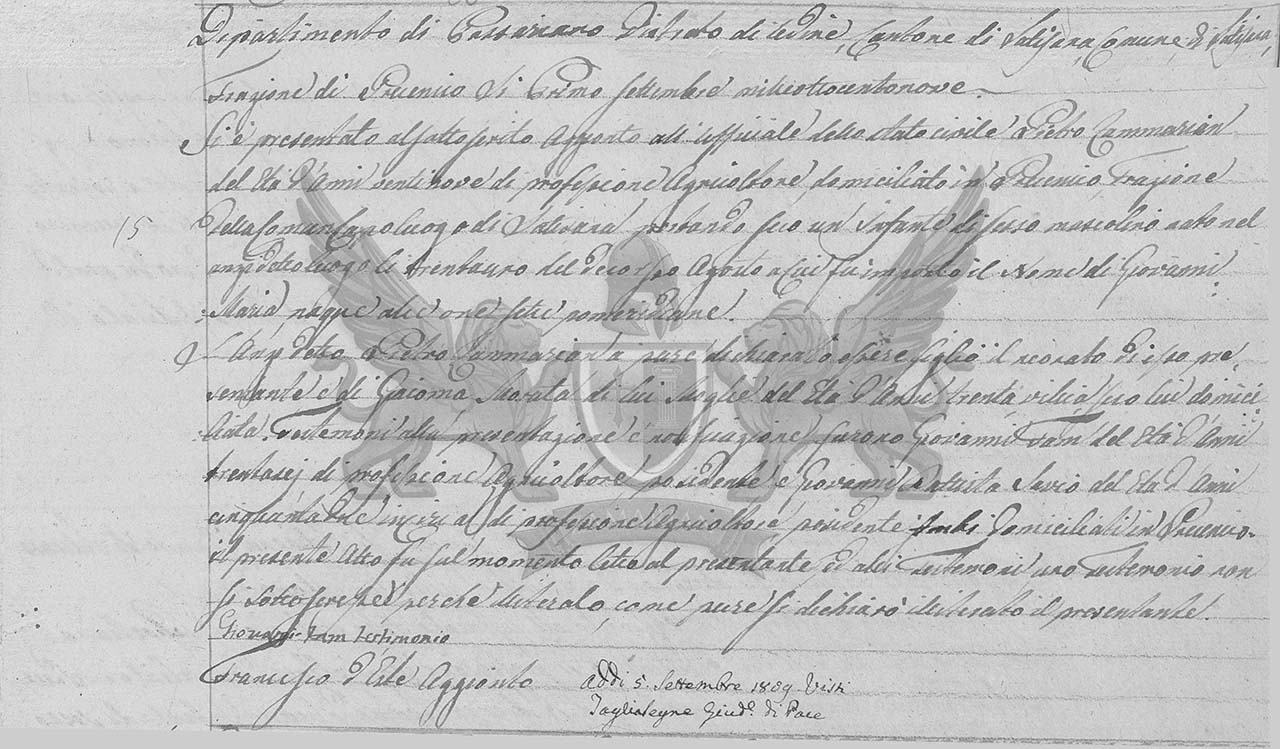 Dipartimento di Passariano Distretto di Udine, Cantone di Valvasa, Comune di Valvasa,
Frazione di Li Primo Settembre milleottocentonove.
Si è presentato al sottoscrito Aggionto all' Ufficiale dello stato civile Pietro Cammarian
del Età d'Anni ventinove di professione Agricoltore domiciliato in Frazione
Della Comun Capoluogo di portando seco un Infante di sesso mascolino nato nel
anzidetto luogo li trentauno del decorso Agosto a cui fu imposto il Nome di Giovanni
Maria, naque alle ore sette pomeridiane.
L'Anzidetto Pietro à pure dichiarato essere figlio il neonato di esso pre=
sentante e di Giacoma Morata di lui Moglie del Età d'Anni trenta seco lui domici=
liata. Testemoni alla presentazione e notificazione furono Giovanni Tam del Età d'Anni
trentasei di professione Agricoltore posidente e Giovanni Batista Savio del Età d'Anni
cinquanta due in circa di professione Agricoltore posidente Ambi Domiciliati in
il presente Atto fu sul momento letto al presentante ed alli Testemoni uno Testemonio non
si sottoscrisse perchè iliterato, come pure si dichiarò iliterato il presentante.
Giovanni Tam testimonio
Francesco d'Este Aggionto
Addi 5 Settembre 1809 Visti
Tagliolegne Giud.e di Pace
15